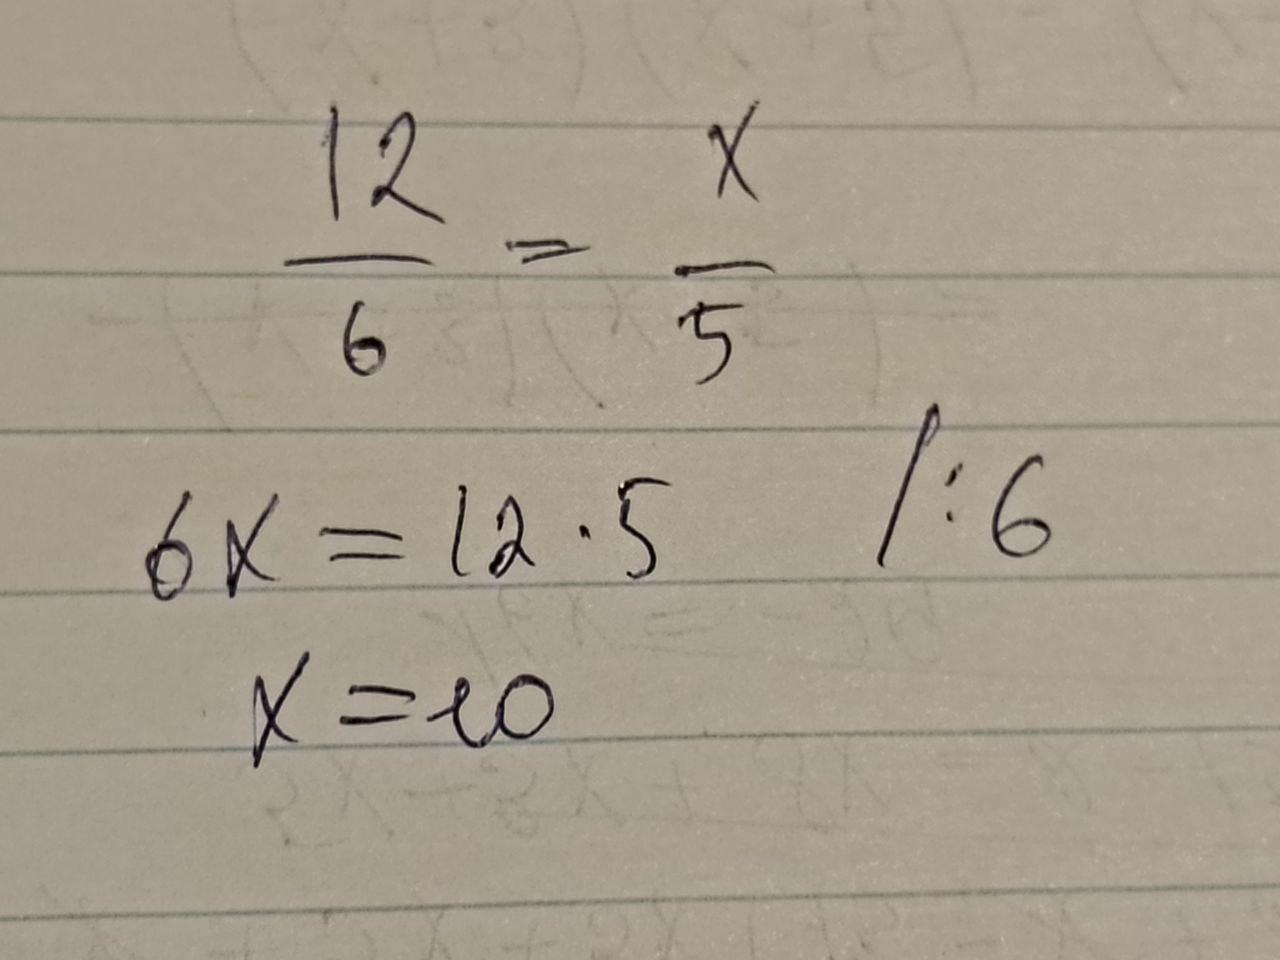 12/6 = x/5
6x = 12 · 5 /:6
x = 10